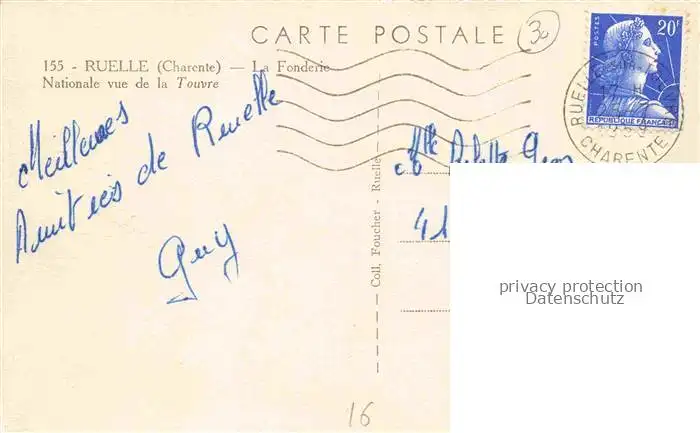 CARTE POSTALE
30
155 - RUELLE (Charente) — La Fonderie
Nationale vue de la Touvre
POSTES
20F
REPUBLIQUE FRANÇAISE
RUELLE
17
CHARENTE
Meilleures
Amitiés de Ruelle
Guy
Mlle
41
Coll. Foucher - Ruelle
privacy protection
Datenschutz
16